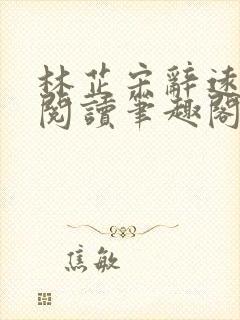 林芷宋辭遠
閱讀筆趣閣
焦敏